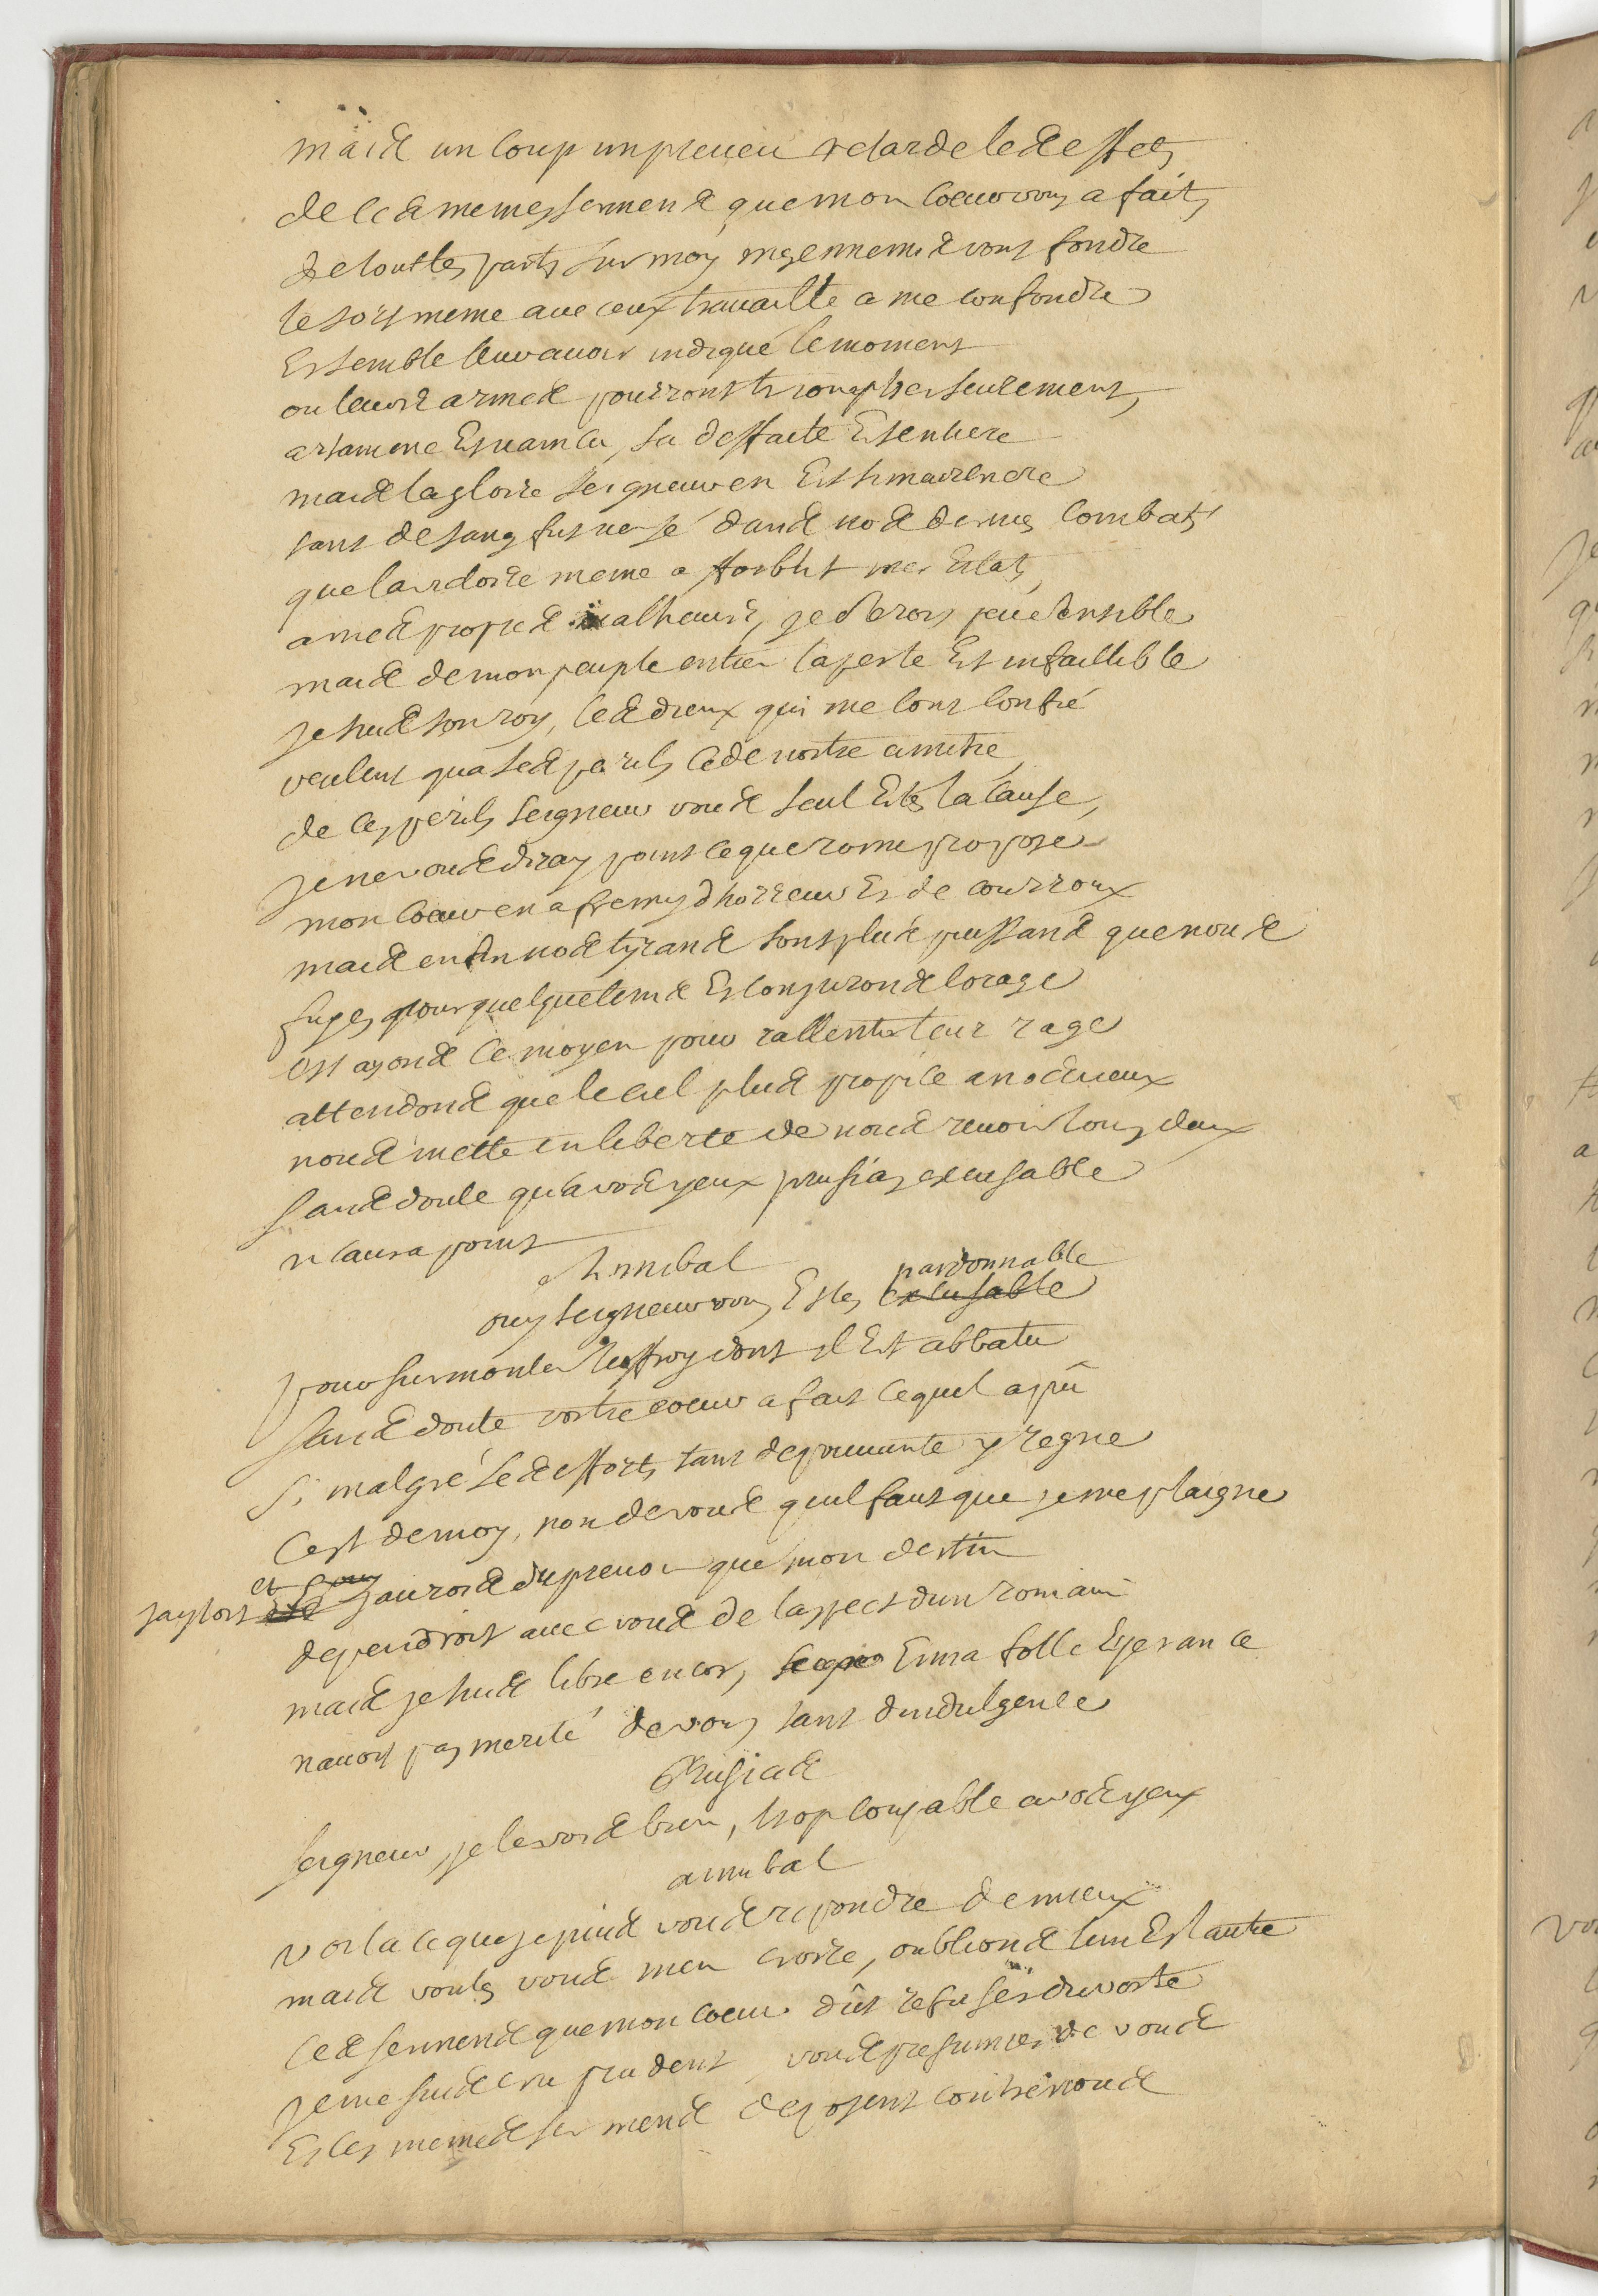 mais un coup unpreueu retarde les effets
de ces memes sermens que mon coeur vous a fait,
de touttes parts sur moy mes ennemis vont fondre
le sort meme auec eux trauaille a me confondre
Et semble leur auoir indiqué le moment
ou leurs armes pourront triompher seurement,
artamene Est vaincu, sa deffaite Est entiere
mais la gloire seigneur en Est si meurtriere
tant de sang fut versé dans nos derniers combats
que la victoire meme affoiblit mes Estats,
a mes propres malheurs, je serois peu sensible
mais de mon peuple entier la perte Est infaillible
je suis son roy, les dieux qui me l'ont confié
veulent qu'a ses perils cede nostre amitié,
de ces perils seigneur vous seul Estes la cause,
je ne vous diray point ce que rome propose
mon coeur en a fremy d'horreur Et de courroux
mais enfin nos tyrans sont plus puissans que nous
fuyes pour quelque tems Et conjurons l'orage
essayons ce moyen pour rallentir leur rage
attendons que le ciel plus propice a nos vieux
nous mette en liberté de nous reuoir tous deux
sans doute qu'a vos yeux prusias excusable
n'aura point
Annibal
ouy seigneur vous Estes excusable pardonnable
pour surmonter l'effroy dont il Est abbatu
sans doute vostre coeur a fait ce qu'il a pû
si malgré ses efforts tant depouuante y regne
C'est de moy, non de vous qu'il faut que je me plaigne
jay tort et j'aurois du preuoir que mon destin
dependroit auec vous de l'aspect d'un romain
mais je suis libre encor, Et ma folle Esperance
n'auoit pas merité de vous tant d'indulgence
Prusias
seigneur, je le vois bien, trop coupable a vos yeux
annibal
voila ce que je puis vous repondre de mieux
mais voulés vous m'en croire, oublions l'un Et l'autre
ces sermens que mon coeur dût refuser du vostre
je me suis cru prudent vous presumiés de vous
Et ces memes sermens deposent contre nous